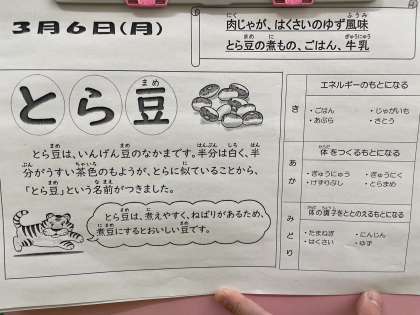 3月6日(月)
肉じゃが、はくさいのゆず風味
とら豆の煮もの、ごはん、牛乳
とら豆
とら豆は、いんげん豆のなかまです。半分は白く、半
分がうすい茶色のもようが、とらに似ていることから、
「とら豆」という名前がつきました。
とら豆は、煮えやすく、ねばりがあるため、
煮豆にするとおいしい豆です。
き
エネルギーのもとになる
・ごはん ・じゃがいも
・あぶら ・さとう
あか
体をつくるもとになる
・ぎゅうにゅう ・ぎゅうにく
・けずりぶし ・とらまめ
みどり
体の調子をととのえるもとになる
・たまねぎ ・にんじん
・はくさい ・ゆず